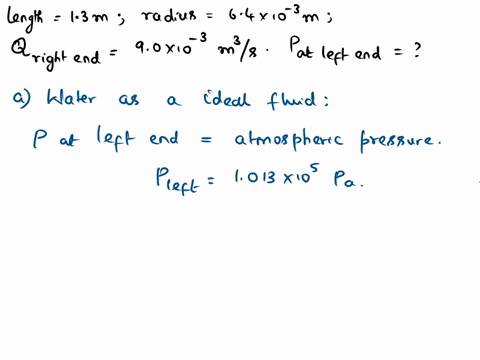 length = 1.3 m ; radius = 6.4×10⁻³ m ;
Q right end = 9.0×10⁻³ m³/s . P at left end = ?
a) Water as a ideal fluid :
P at left end = atmospheric pressure.
P left = 1.013 ×10⁵ Pa.